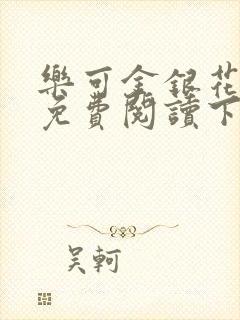 樂可金銀花
免費閱讀下
吳軻